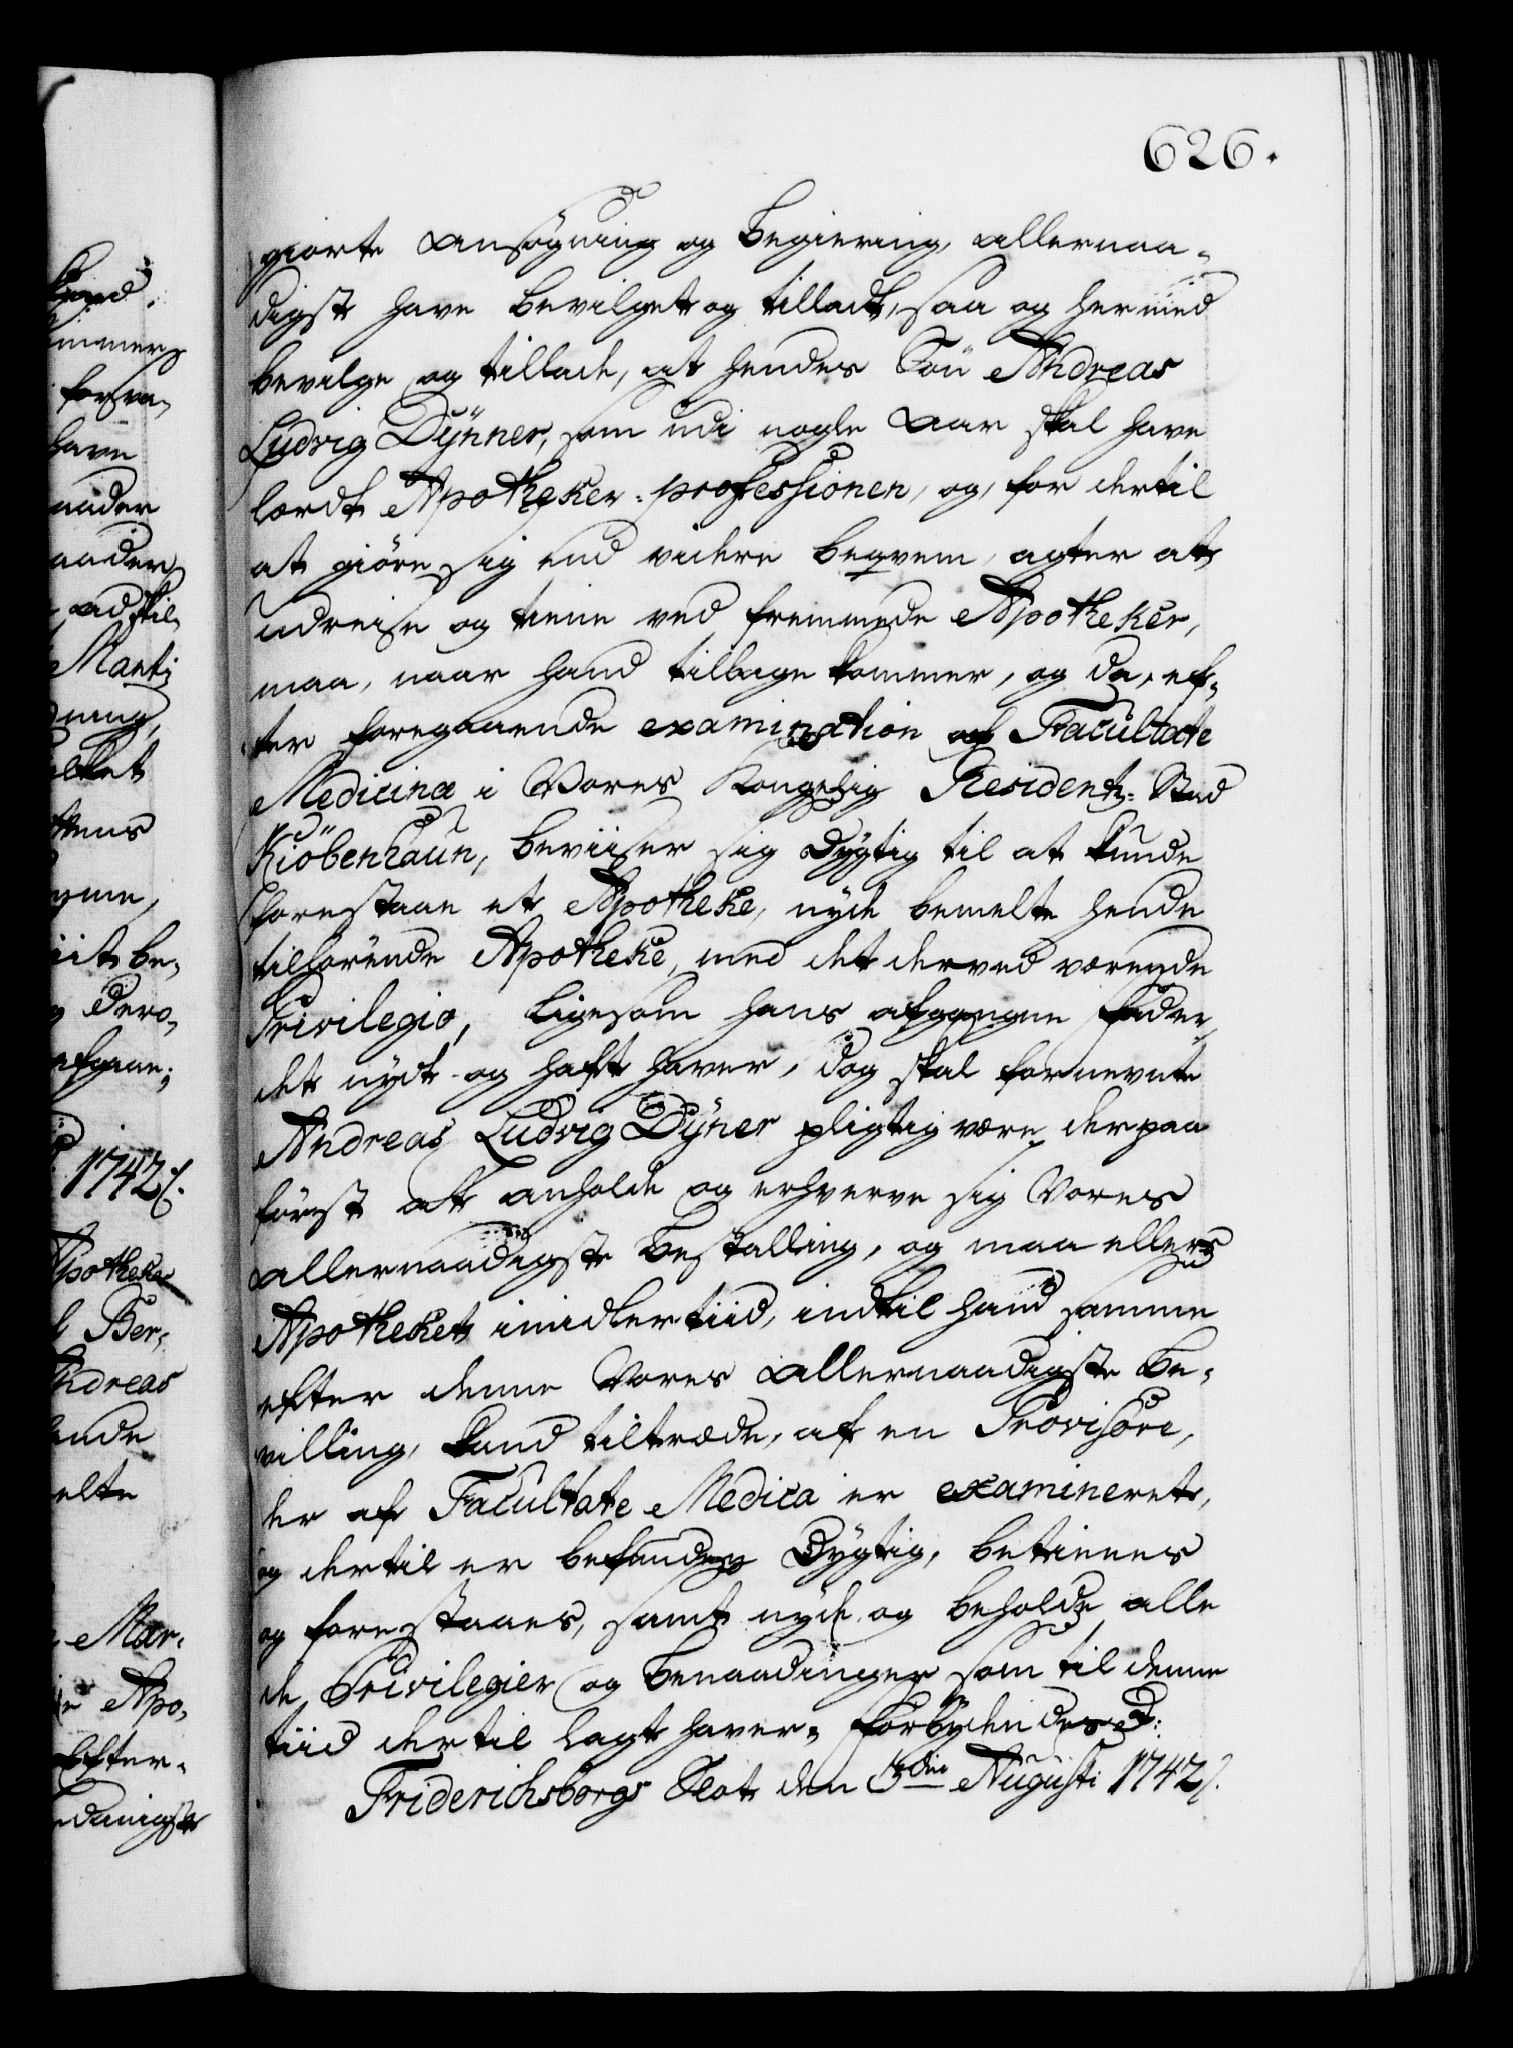 626.
giorte Ansøgning og Begiering, allernaa-
digst have bevilget og tilladt, saa og hermed
bevilge og tillade, at hendes Søn Andreas
Ludvig Dÿnner, som udi nogle Aar skal have
lærdt Apotheker-professionen, og, for dertil
at giøre sig end videre beqvem, agter at
udreise og tiene ved fremmede Apotheker,
maa, naar hand tilbage kommer, og da, ef-
ter foregaaende examination af Facultate
Medicina i Vores Kongelig Residentz-Stad
Kiöbenhaun, beviiser sig dygtig til at kunde
forestaae et Apotheke, nyde bemelte hende
tilhørende Apotheke, med det derved værende
Privilegio, ligesom hans afgangne Fader
det nydt og haft haver, dog skal fornevnte
Andreas Ludvig Dÿner pligtig være derpaa
først at anholde og erhverve sig Vores
allernaadigste Bestalling, og maa ellers
Apotheket imidlertiid, indtil hand samme
efter denne Vores allernaadigste Be-
villing, kand tiltræde, af en Provisore,
der af Facultate Medica er examineret,
og dertil er befunden dygtig, betienes
og forestaaes, samt nyde og beholde alle
de Privilegier og Benaadinger som til denne
tiid dertil lagt haver, Forbydendes &c:
Friderichsborgs Slot den 3die Augusti 1742.